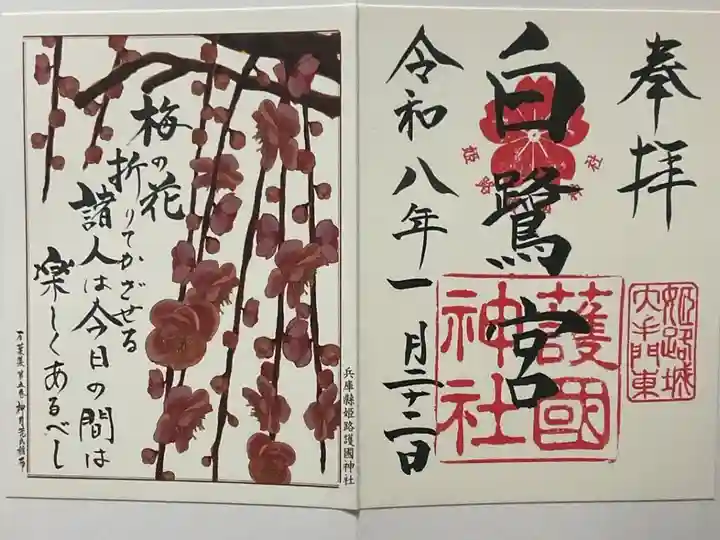 奉拝
姫路城
大手門東
白鷺宮
護國
神社
令和八年一月二十二日
兵庫縣姫路護國神社
梅の花
折りてかざせる
諸人は今日の間は
楽しくあるべし
万葉集第五巻